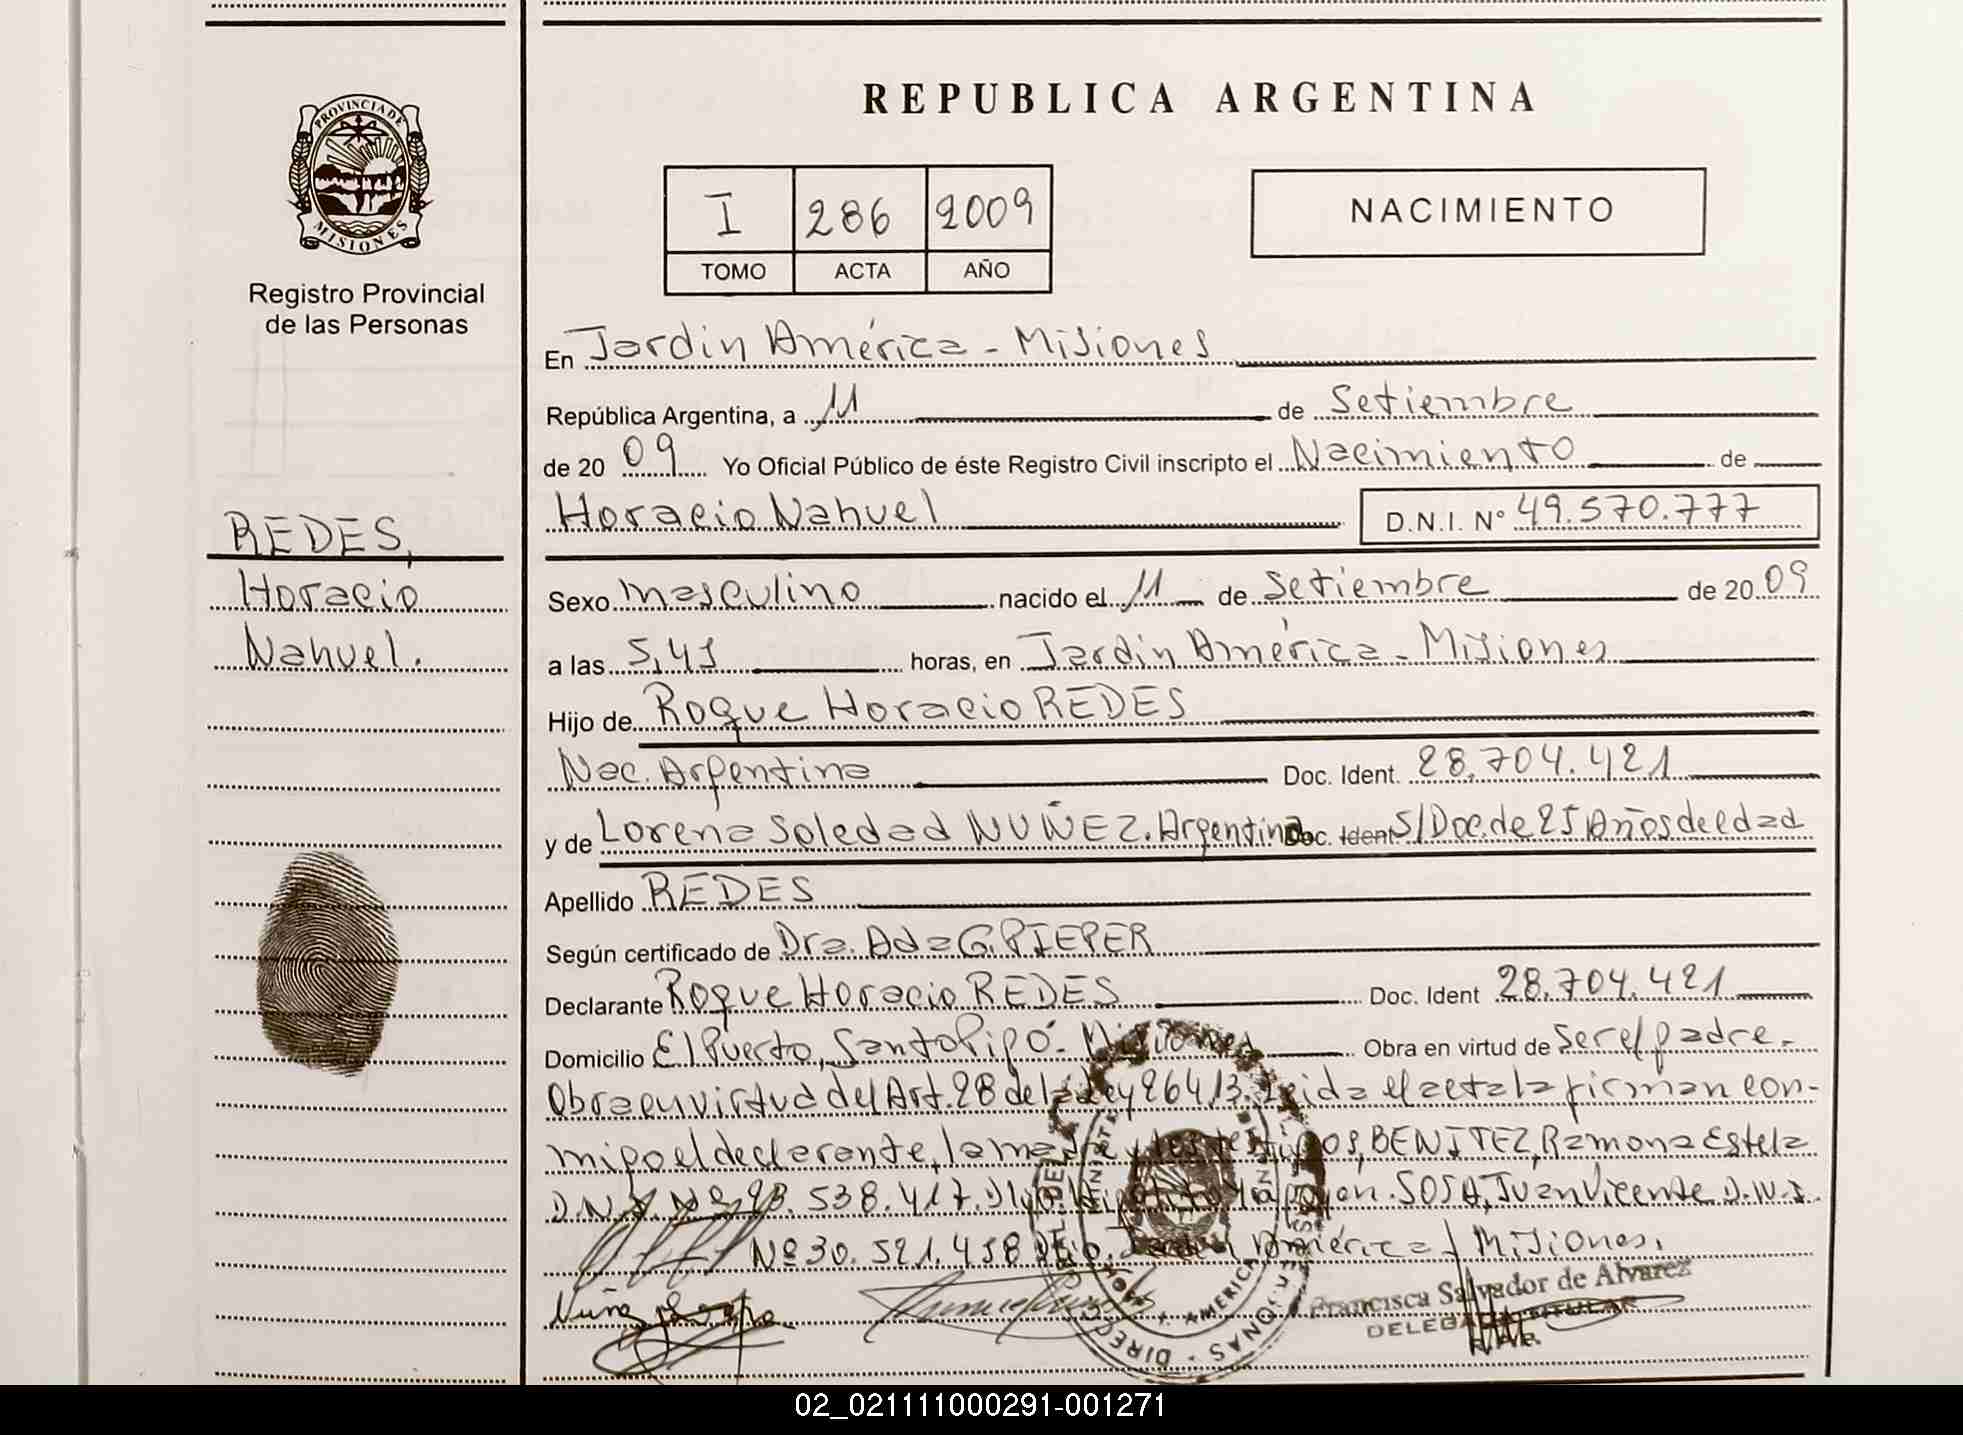 PROVINCIA DE
MISIONES
Registro Provincial
de las Personas
REDES,
Horacio
Nahuel.
REPUBLICA ARGENTINA
I 286 2009
TOMO ACTA AÑO
NACIMIENTO
En Jardin América - Misiones
República Argentina, a 11 de Setiembre
de 20 09 Yo Oficial Público de éste Registro Civil inscripto el Nacimiento de
Horacio Nahuel D.N.I. N° 49.570.777
Sexo masculino nacido el 11 de Setiembre de 20 09
a las 5,41 horas, en Jardin América - Misiones
Hijo de Roque Horacio REDES
Nac. Argentina Doc. Ident. 28.704.421
y de Lorena Soledad NUÑEZ. Argentina Doc. Ident S/Doc. de 25 Años de edad
Apellido REDES
Según certificado de Dra. Ada G. PIEPER
Declarante Roque Horacio REDES Doc. Ident 28.704.421
Domicilio El Puerto, Santo Pipó. Misiones Obra en virtud de Ser el padre.
Obra en virtud del Art. 28 de la Ley 26413. Leida el acta la firman con-
migo el declarante, la madre y los testigos, BENITEZ, Ramona Estela
D.N.I. Nº 538.417. Dlio. Hipólito Yrigoyen. SOSA, Juan Vicente D.N.I.
Nº 30.521.458 Dlio. Jardin América / Misiones.
Francisca Salvador de Alvarez
DELEGADA TITULAR
02_021111000291-001271